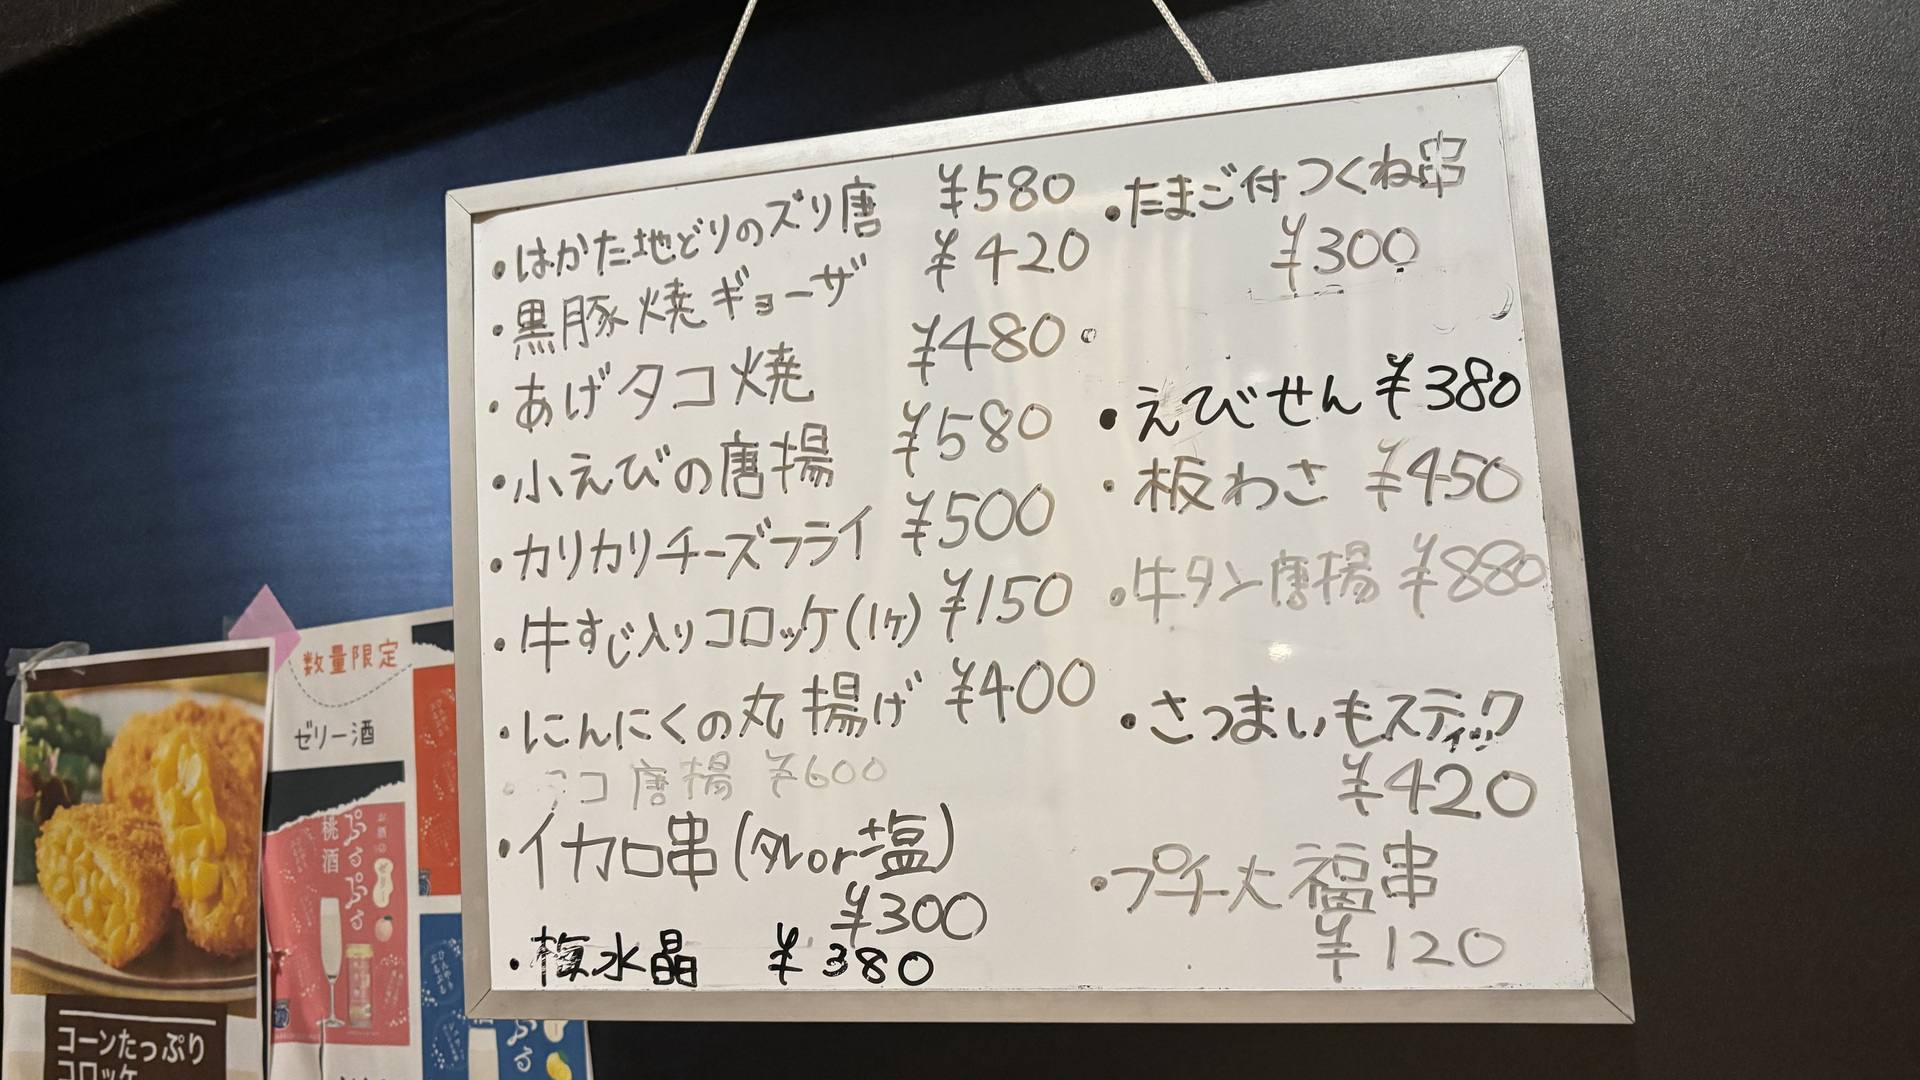 ・はかた地どりのズリ唐 ¥580
・黒豚焼ギョーザ ¥420
・あげタコ焼 ¥480
・小えびの唐揚 ¥580
・カリカリチーズフライ ¥500
・牛すじ入りコロッケ(1ヶ) ¥150
・にんにくの丸揚げ ¥400
・タコ唐揚 ¥600
・イカ口串(タレor塩)
¥300
・梅水晶 ¥380
・たまご付つくね串
¥300
・えびせん ¥380
・板わさ ¥450
・牛タン唐揚 ¥880
・さつまいもスティック
¥420
・プチ大福串
¥120
コーンたっぷり
コロッケ
数量限定
ゼリー酒
お酒のゼリー
ぷるぷる
桃酒